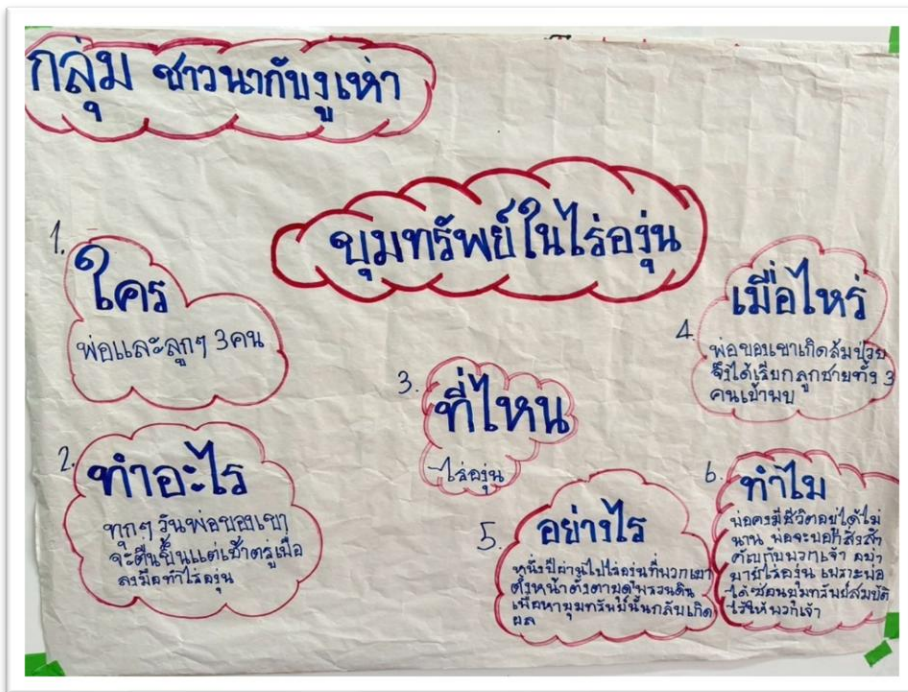 กลุ่ม ชาวนากับงูเห่า
ขุมทรัพย์ในไร่องุ่น
1.
ใคร
พ่อและลูกๆ 3 คน
2.
ทำอะไร
ทุกๆ วันพ่อของเขา
จะตื่นขึ้นแต่เช้าตรู่เพื่อ
ลงมือทำไร่องุ่น
3.
ที่ไหน
-ไร่องุ่น
4.
เมื่อไหร่
พ่อของเขาเกิดล้มป่วย
จึงได้เรียกลูกชายทั้ง 3
คนเข้าพบ
5.
อย่างไร
หนึ่งปีผ่านไปไร่องุ่นที่พวกเขา
ตั้งหน้าตั้งตาขุดพรวนดิน
เพื่อหาขุมทรัพย์นั้นกลับเกิด
ผล
6.
ทำไม
พ่อคงมีชีวิตอยู่ได้ไม่
นาน พ่อจะบอกสิ่งสำ
คัญกับพวกเจ้า อย่า
ขายไร่องุ่น เพราะพ่อ
ได้ซ่อนขุมทรัพย์สมบัติ
ไว้ให้พวกเจ้า